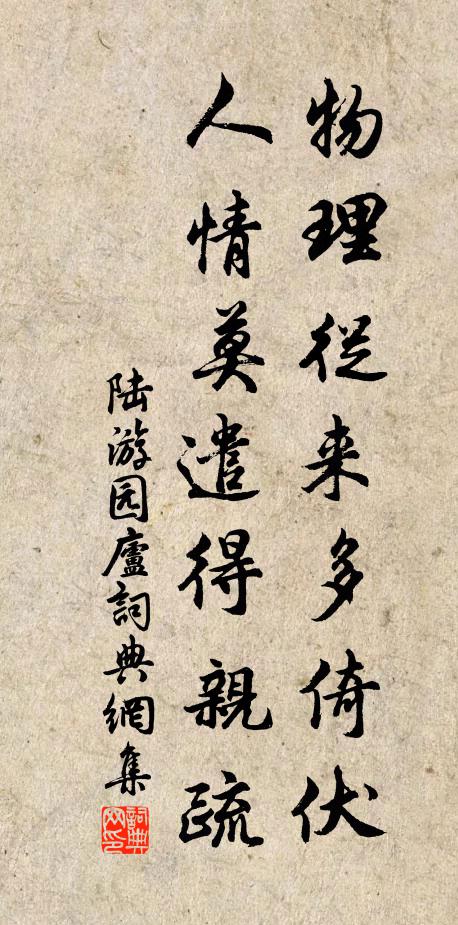 物理從来多倚伏
人情莫遣得親疏
陆游园廬詞典網集
詞典网印